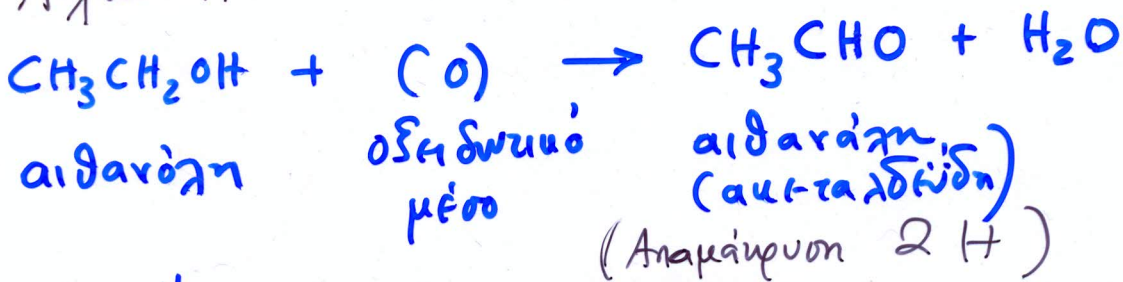 CH₃CH₂OH + (O) → CH₃CHO + H₂O
αιθανόλη οξειδωτικό αιθανάλη
μέσο (ακεταλδεΰδη)
(Απομάκρυση 2 H)